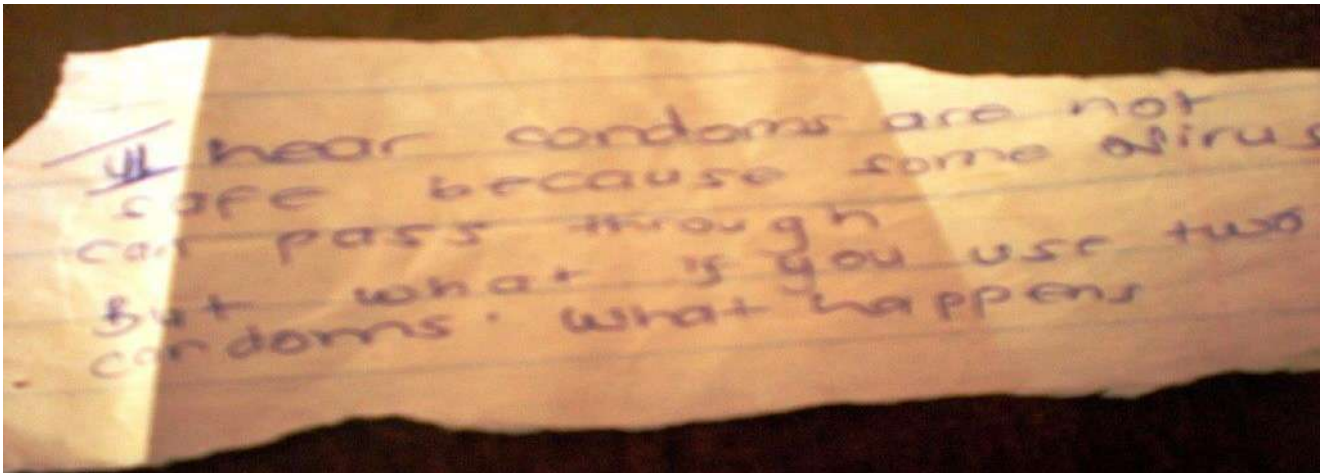 I hear condoms are not
safe because some virus
can pass through
But what if you use two
condoms. What happens